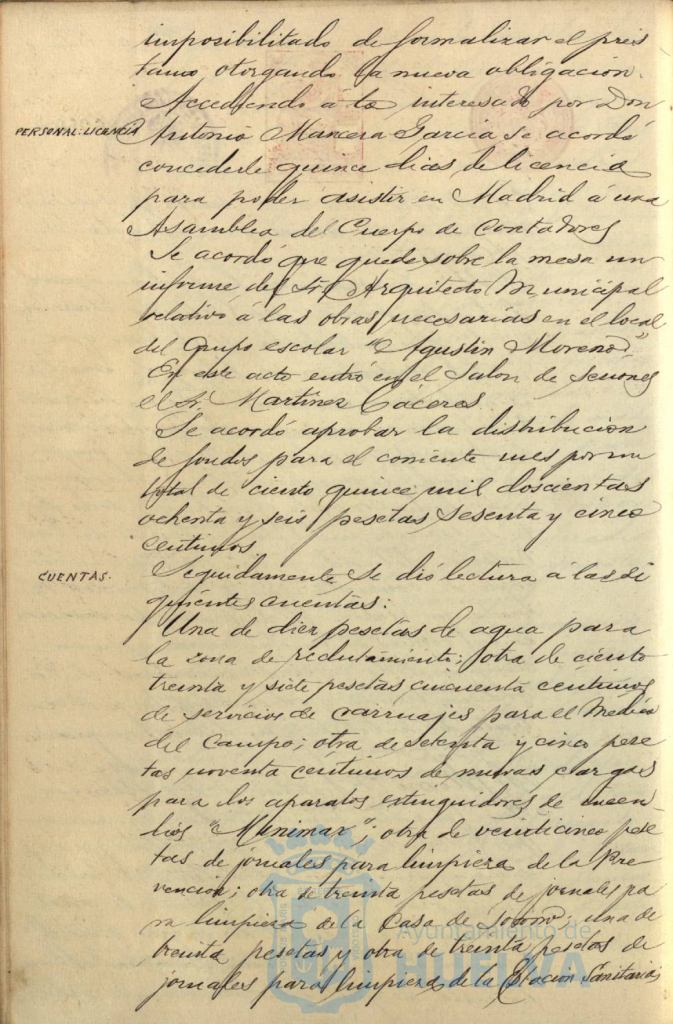 imposibilitado de formalizar el prés
tamo otorgando la nueva obligacion.
Accediendo á lo interesado por Don
PERSONAL: LICENCIA
Antonio Mancera Garcia se acordó
concederle quince dias de licencia
para poder asistir en Madrid á una
Asamblea del Cuerpo de Contadores
Se acordó que quede sobre la mesa un
informe del Sr. Arquitecto Municipal
relativo á las obras necesarias en el local
del Grupo escolar "Agustin Moreno".
En este acto entró en el Salon de Sesiones
el Sr. Martinez Caceres.
Se acordó aprobar la distribucion
de fondos para el corriente mes por un
total de ciento quince mil doscientas
ochenta y seis pesetas sesenta y cinco
centimos.
CUENTAS.
Seguidamente se dió lectura á las si
guientes cuentas:
Una de diez pesetas de agua para
la zona de reclutamiento; otra de ciento
treinta y siete pesetas cincuenta centimos
de servicios de carruajes para el Medico
del Campo; otra de setenta y cinco pese
tas noventa centimos de nuevas cargas
para los aparatos extinguidores de incen
dios "Minimax"; otra de veinticinco pese
tas de jornales para limpieza de la Pre
vencion; otra de treinta pesetas de jornales pa
ra limpieza de la Casa de Socorro; una de
treinta pesetas y otra de treinta pesetas de
jornales para limpieza de la Estacion Sanitaria;
Ayuntamiento de
HUELVA